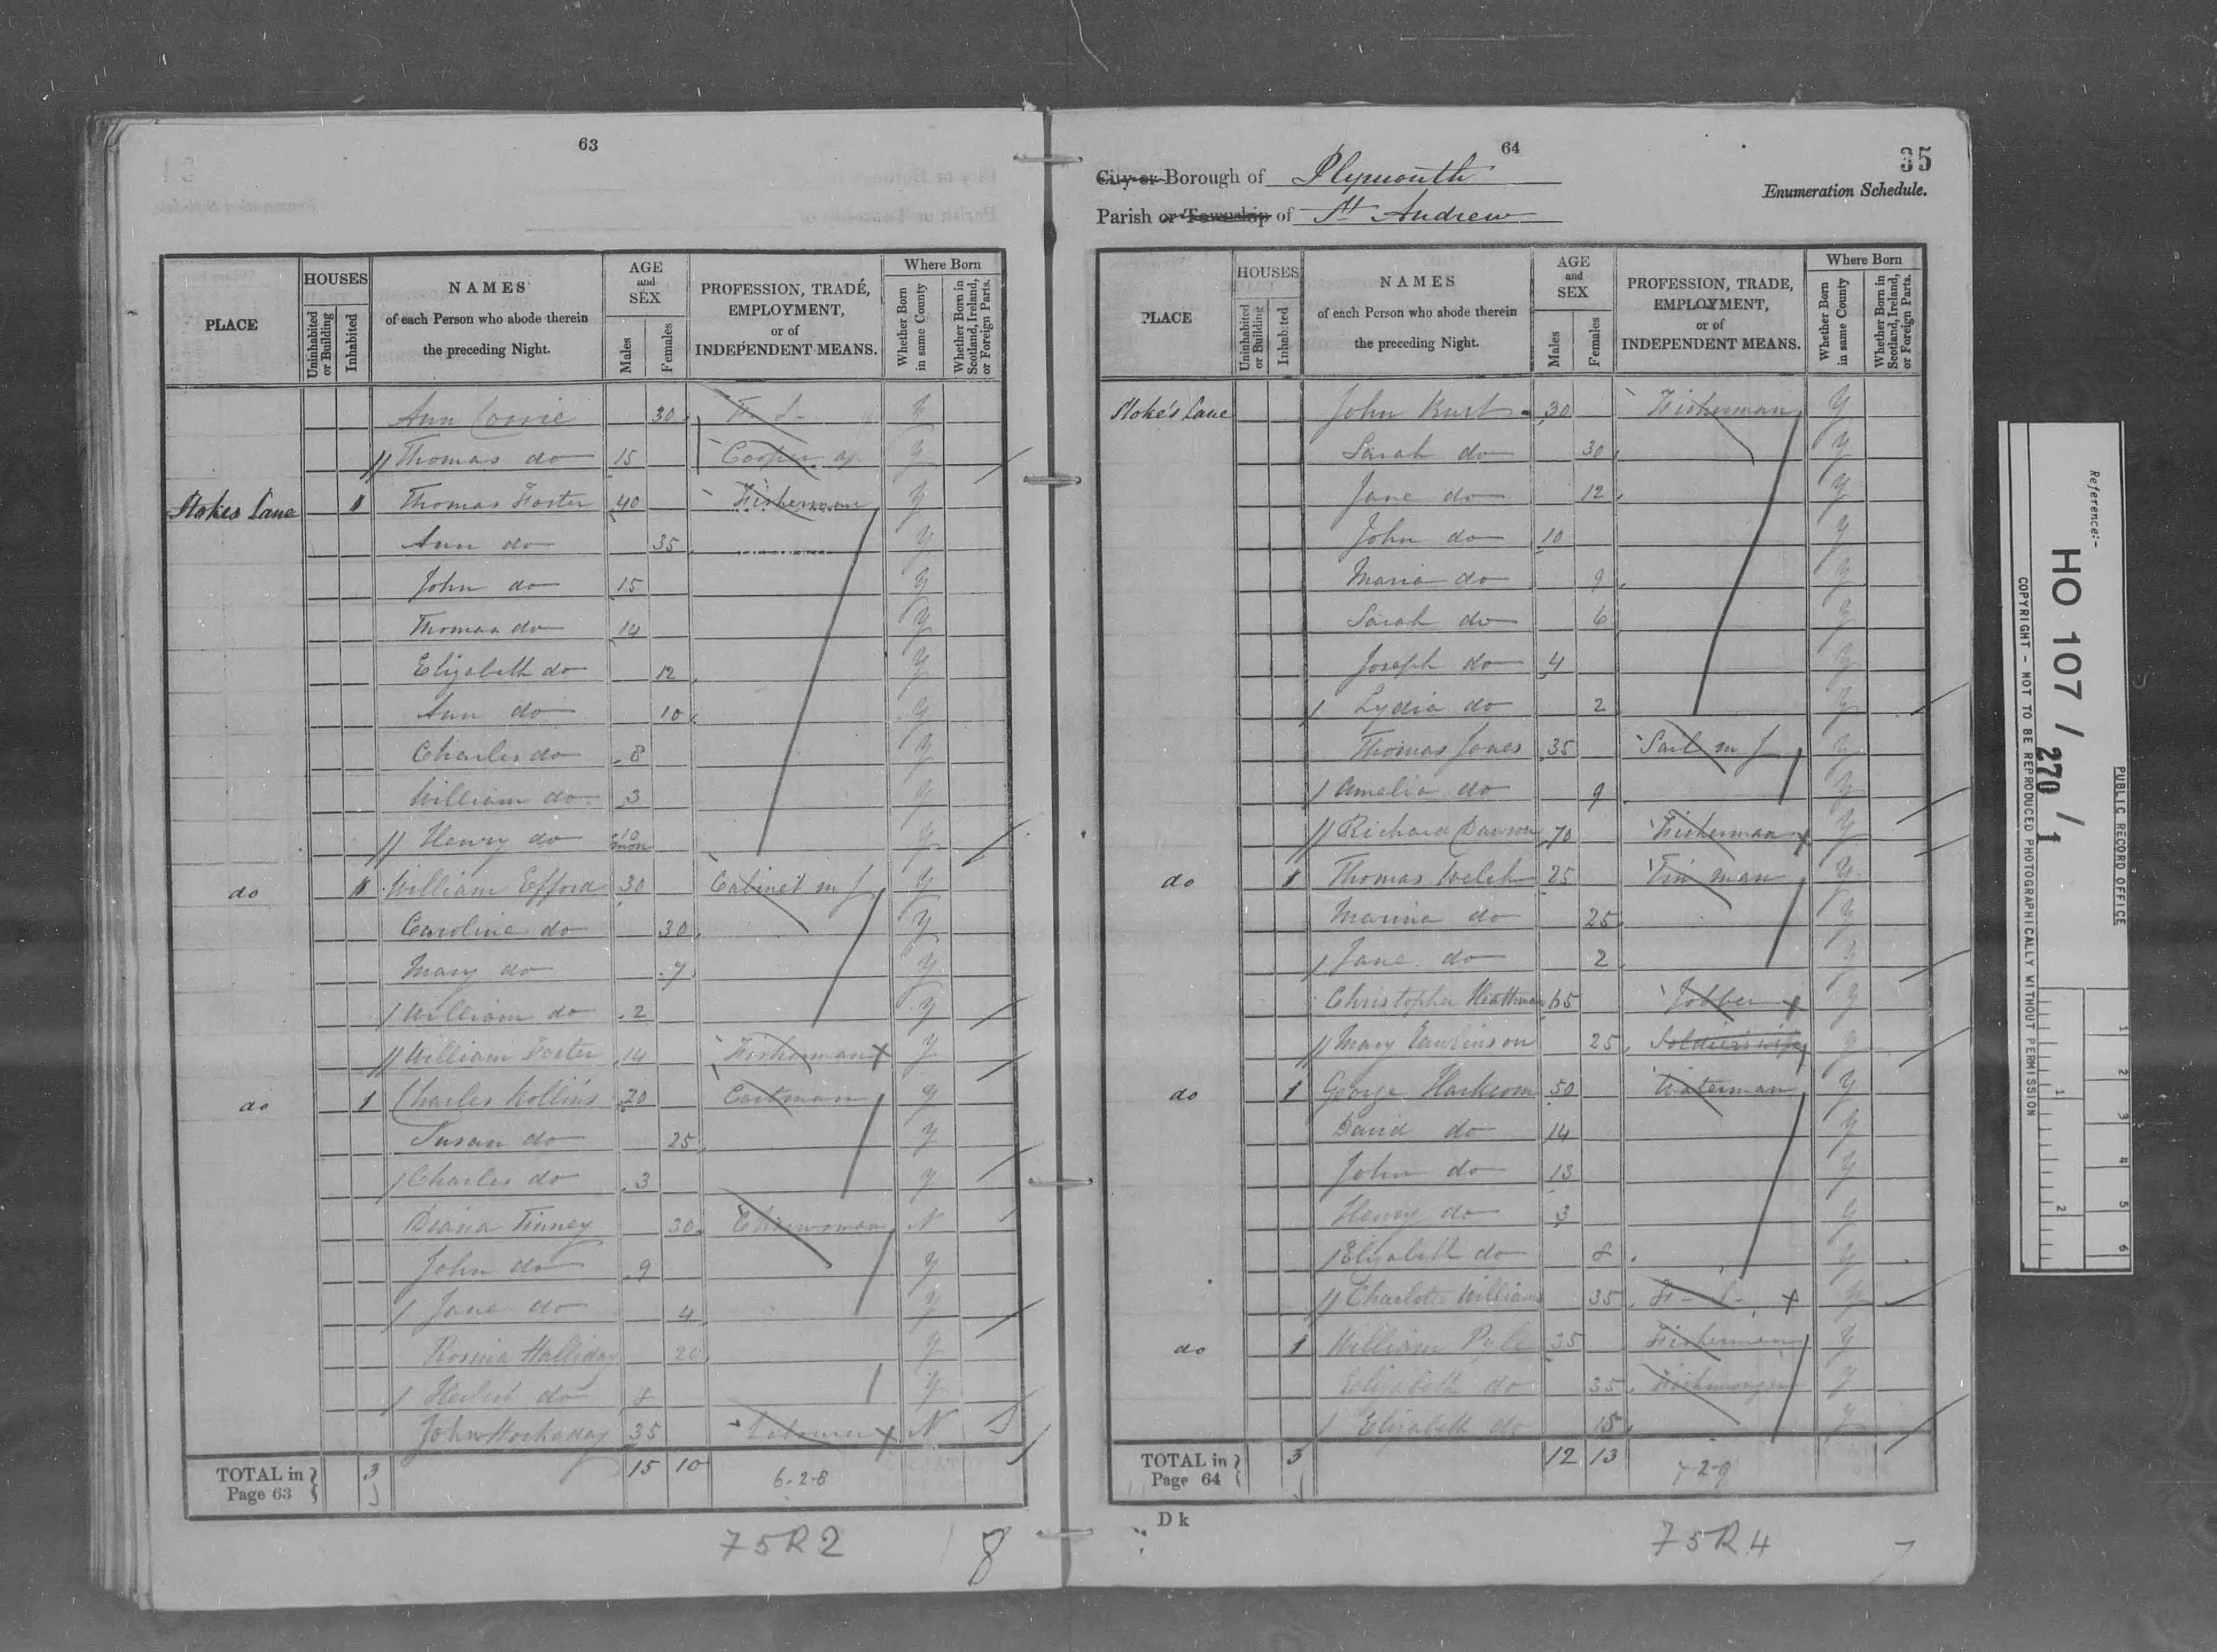 63
PLACE | HOUSES Uninhabited or Building | Inhabited | NAMES of each Person who abode therein the preceding Night. | AGE and SEX Males | Females | PROFESSION, TRADE, EMPLOYMENT, or of INDEPENDENT MEANS. | Where Born Whether Born in same County | Whether Born in Scotland, Ireland, or Foreign Parts.
Ann 30 F. S. y
// Thomas do 15 Cooper ap y
Stokes Lane 1 Thomas Foster 40 Fisherman y
Ann do 35 y
John do 15 y
Thomas do 14 y
Elizabeth do 12 y
Ann do 10 y
Charles do 8 y
William do 3 y
// Henry do 10 mon y
do 1 William Efford 30 Cabinet m J y
Caroline do 30 y
Mary do 7 y
/ William do 2 y
// William Foster 14 Fisherman y
do 1 Charles Collins 20 Cartman y
Susan do 25 y
/ Charles do 3 y
Diana Finney 30 Charwoman N
John do 9 y
/ Jane do 4 y
Rosina Halliday 20 y
/ do 8 y
John Hockaday 35 Labourer N
TOTAL in Page 63 } 3 15 10 6-2-8
75R2 8
64
35
City or Borough of Plymouth
Enumeration Schedule.
Parish or Township of St Andrew
PLACE | HOUSES Uninhabited or Building | Inhabited | NAMES of each Person who abode therein the preceding Night. | AGE and SEX Males | Females | PROFESSION, TRADE, EMPLOYMENT, or of INDEPENDENT MEANS. | Where Born Whether Born in same County | Whether Born in Scotland, Ireland, or Foreign Parts.
Stoke's Lane John 30 Fisherman y
Sarah do 30 y
Jane do 12 y
John do 10 y
Maria do 9 y
Sarah do 6 y
Joseph do 4 y
/ Lydia do 2 y
Thomas Jones 35 Sail m J y
/ Amelia do 9 y
// Richard Dawson 70 Fisherman y
do 1 Thomas Welch 25 Tin man y
Marina do 25 y
/ Jane do 2 y
Christopher Heathman 65 Jobber y
// Mary 25 Soldier's wife y
do 1 George Harkcom 50 Waterman y
David do 14 y
John do 13 y
Henry do 3 y
/ Elizabeth do 8 y
// Charlotte Williams 35 F. S. y
do 1 William Pyle 35 Fisherman y
Elizabeth do 35 Fishmonger y
/ Elizabeth do 15 y
TOTAL in Page 64 } 3 12 13 7-2-9
D k
75R4
Reference:-
HO 107 / 270 / 1
PUBLIC RECORD OFFICE
COPYRIGHT - NOT TO BE REPRODUCED PHOTOGRAPHICALLY WITHOUT PERMISSION
1 2
1 2 3 4 5 6